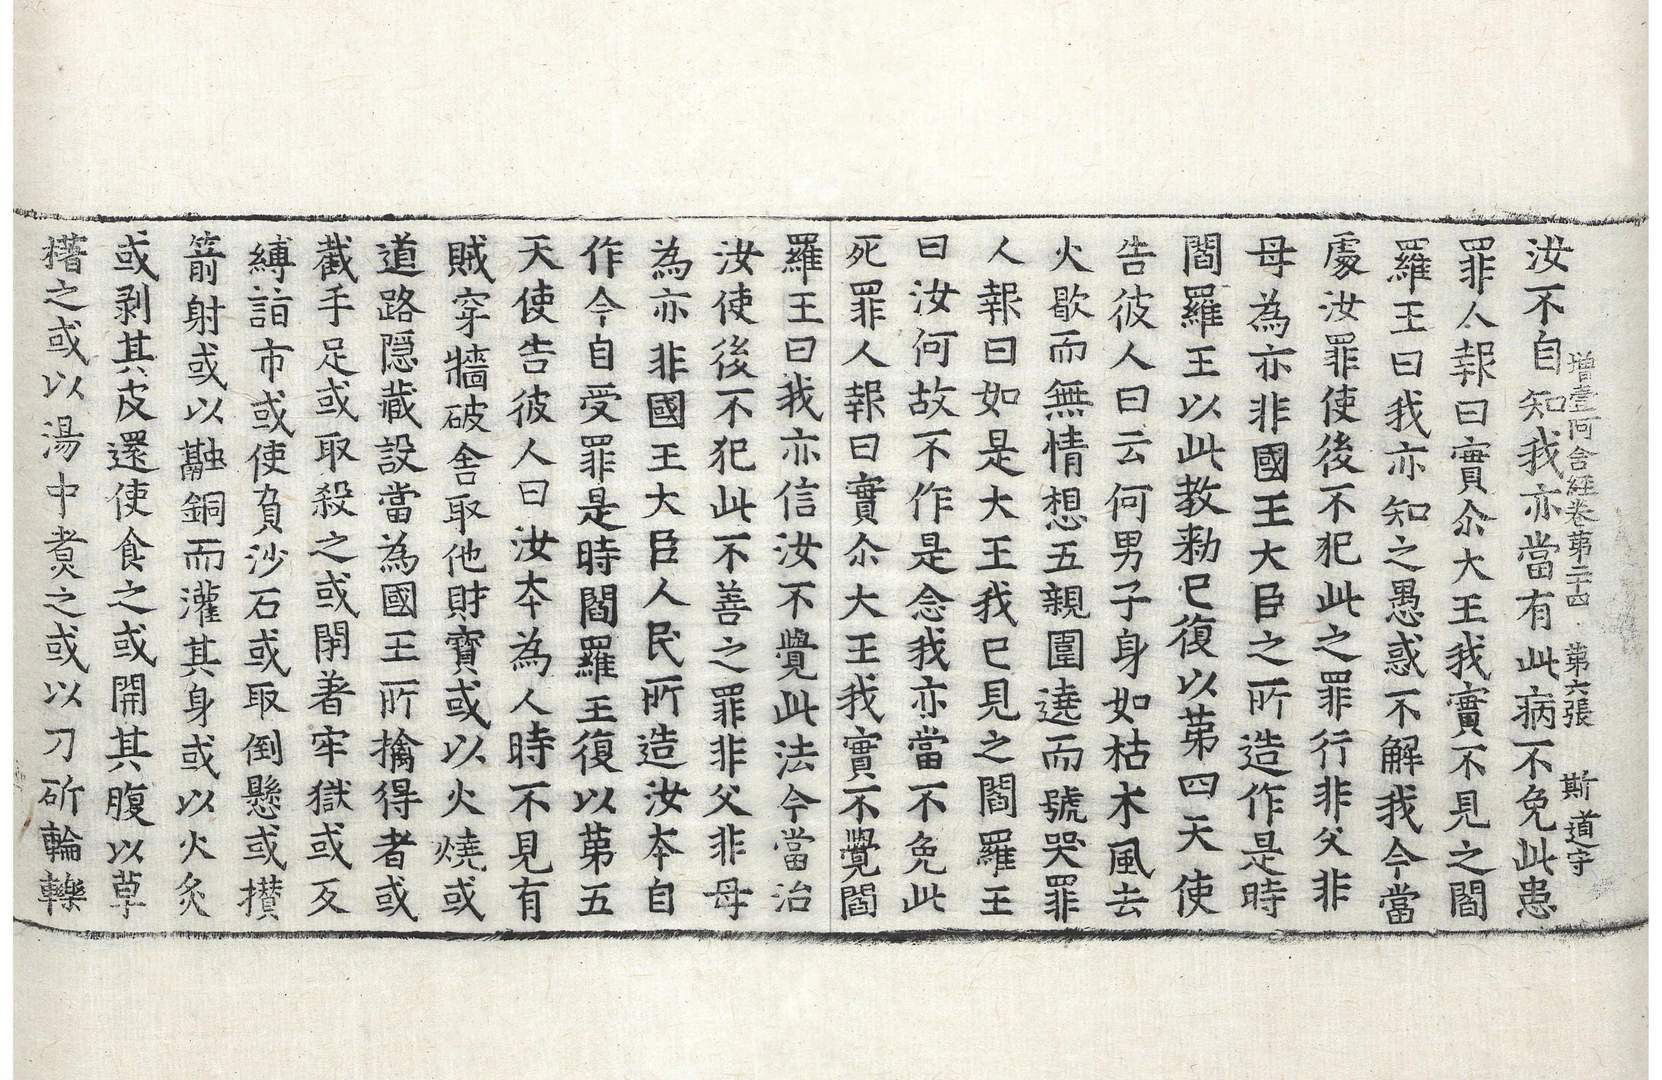 增壹阿含經卷第二十四　第六張　斯　道守
汝不自知我亦當有此病不免此患
罪人報曰實尒大王我實不見之閻
羅王曰我亦知之愚惑不解我今當
處汝罪使後不犯此之罪行非父非
母為亦非國王大臣之所造作是時
閻羅王以此教勑已復以第四天使
告彼人曰云何男子身如枯木風去
火歇而無情想五親圍遶而號哭罪
人報曰如是大王我已見之閻羅王
曰汝何故不作是念我亦當不免此
死罪人報曰實尒大王我實不覺閻
羅王曰我亦信汝不覺此法今當治
汝使後不犯此不善之罪非父非母
為亦非國王大臣人民所造汝本自
作今自受罪是時閻羅王復以第五
天使告彼人曰汝本為人時不見有
賊穿牆破舍取他財寶或以火燒或
道路隱藏設當為國王所擒得者或
截手足或取殺之或閉著牢獄或反
縛詣市或使負沙石或取倒懸或攢
箭射或以融銅而灌其身或以火炙
或剥其皮還使食之或開其腹以草
揩之或以湯中煑之或以刀斫輪轢